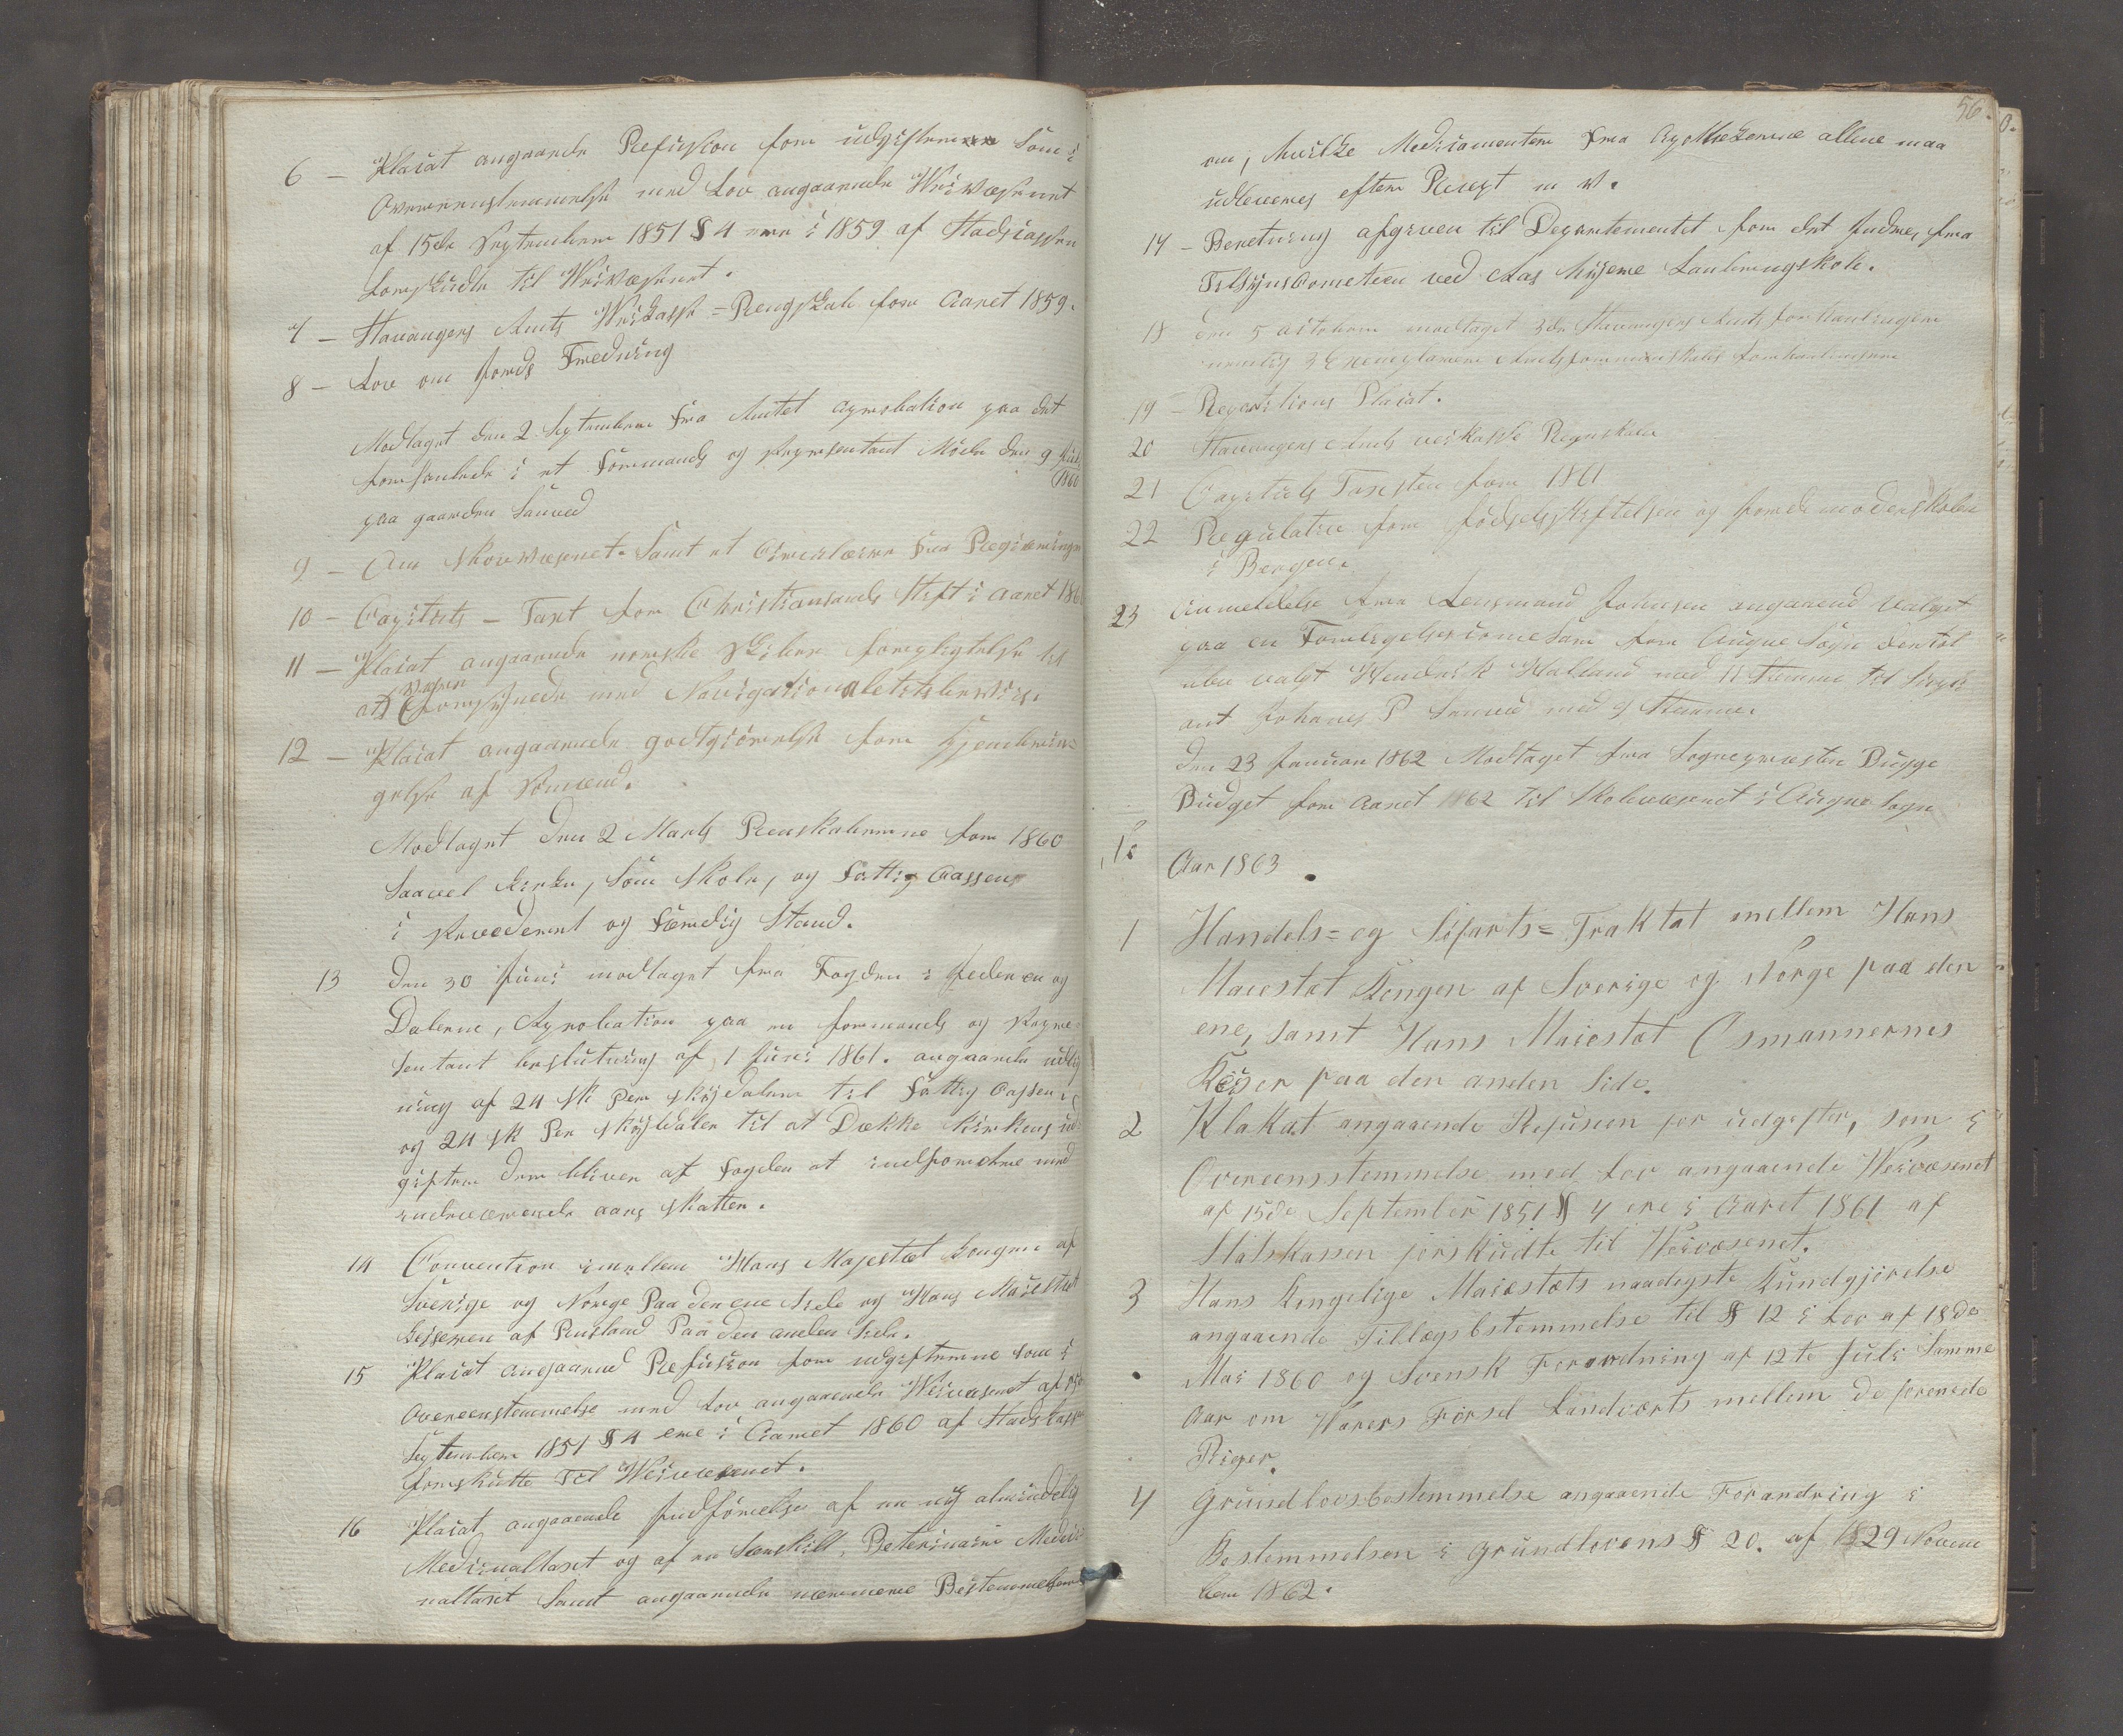 6 — Placat angaaende Refusion for udgifterne som i
Overeenstemmelse med Lov angaaende Veivæsenet
af 15de September 1851 § 4 ere i 1859 af Stadscassen
forskudte til Veivæsenet.
7 — Stavangers Amts Veikasse=Rengskab for Aaret 1859.
8 — Lov om Jords Fredning
Modtaget den 2 September fra Amtet Aprobation paa det
forhandlede i et formands og Representant Möde den 9 Juli
1860
paa gaarden Sanved
9 — Om Skovvæsnet. Samt et Circulære fra Regieringen
10 — Capitels — Taxt for Christiansands Stift i Aaret 186
11 — Placat angaaende norske Skibes forpligtelse til
at være forsynede med Navigationaletitsbeviis.
12 — Placat angaaende godtgiörelse for Hjembrin=
gelse af Sömænd.
Modtaget den 2 Marts Renskaberne for 1860
saavel Kirke, som Skole, og Fattig Cassen,
i revederet og færdig Stand.
13 den 30 Juni modtaget fra Fogden i Jederen og
Dalerne, Aprobation paa en formands og Repre-
sentant beslutning af 1 Juni 1861. angaaende udlig
ning af 24 sk Per Skijdaler til Fattig Cassen,
og 24 sk Per Skijldaler til at Dække Kirkens ud-
gifter dem bliver af Fogden at indfordre med
indeværende aars skatter.
14 Convention imellem Hans Majestæt Kongen af
Sverige og Norge Paa den ene Side og Hans Maiestæt
Keiseren af Rusland Paa den anden Side.
15 Placat angaaend Refusion for udgifterne som i
Overeenstemmelse med Lov angaaende Veivæsenet af 15de
September 1851 § 4 ere i Aaret 1860 af Stadskassen
forskutte Til Veivæsenet.
16 Placat angaaende Indförelse af en nÿ almindelig
Medicinaltaxt og af en særskilt Veterinair Medici
naltaxt samt angaaende nærmere Bestemmelser
56.
om, hvilke Medicamenter fra Apothekerne allene maa
udleveres efter Recept m v.
17 — Beretning afgiven til Departementet for det Indre, fra
Tilsÿnscometeen ved Aas höjere Lanbrugskole.
18 den 5 October modtaget 3de Stavangers Amts forhandlinger
nemlig 3 Exemplarer Amtsformandskabs forhandlinger
19 — Repartitions Placat.
20 Stavangers Amts veikasse Regnskaber
21 Capituls Taxsten for 1861
22 Regulative for födselsstiftelsen og jordemoderskolen
i Bergen.
23 Anmeldelse fra Lensmand Johnsen angaaend valget
paa en Forligelsescomesær for Augne Sogn dertil
blev valgt Hendrik Hölland med 11 stemmer til Suppli
ant Johanes P Sanved med 9 Stemmer.
den 23 Januar 1862 Modtaget fra Sognepræsten Bugge
Budget for Aaret 1862 til Skolevæsenet i Augne Sogn
Aar 1863.
1 Handels= og Söfarts= Traktat mellem Hans
Maiestæt Kongen af Sverige og Norge paa den
ene, samt Hans Maiestæt Osmannernes
Keiser paa den anden Side.
2 Klakat angaaende Refusion for udgifter, som i
Overeensstemmelse med Lov angaaende Veivæsenet
af 15de September 1851 § 4 ere i Aaret 1861 af
Statskassen forskudte til Veivæsenet.
3 Hans Kongelige Maiestæts naadigste Kundgjörelse
angaaende Tillægsbstemmelse til § 12 i Lov af 18de
Mai 1860 og Svensk Forordning af 12te Juli Samme
Aar om Varers Försel Landværts mellem de forenede
Riger.
4 Grundlovsbestemmelse angaaende Forandring i
Bestemmelsen i Grundlovens § 20. af 29 Novem
ber 1862.